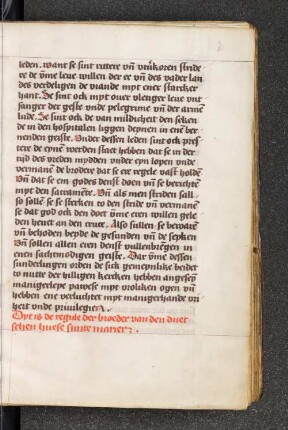 leden. want se sint rittere vn̄ vtuͤkoren stride
re de vm̄e leue willen der ee vn̄ des vader lan
des verdeligen de viande mpt ener starcker
hant. Se sint ock mpt ouer vlenger leue vnt
fanger der geste vnde pelegrime vn̄ der arme
lude. Se sint ock de van mildicheit den seken
de in den hospitalen liggen deynen in ene ber
nenden geiste. Onder dessen leden sint ock pres
tere de eyne werden staet hebben dat se in der
tijd des vreden mydden vnder eyn lopen vnde
vermane de brodere dat se ere regele vast holde
Vn̄ dat se em godes denst doen vn̄ se berichte
mpt den sacramēte. Vn̄ als men striden sall
so solle se se sterken to den stride vn̄ vermane
se dat god ock den doet vm̄e eren willen gele
den heuet an den cruce. Also sullen se bewaren
vn̄ behoden beyde de gesunden vn̄ de seyken
Vn̄ sollen allen eren denst vullenbrēgen in
enen sachtmodigen geiste. Dar vm̄e dessen
sunderlingen orden de sick gemeynlike beidet
to nutte der hilligen kerken hebben angesey
manigerleye pawese mpt vroliken ogen vn̄
hebben ene verluchtet mpt manigerhande vri
heit vnde priuilegien.
Dyt is de regule der broeder van den duet
schen huese sunte marien:.